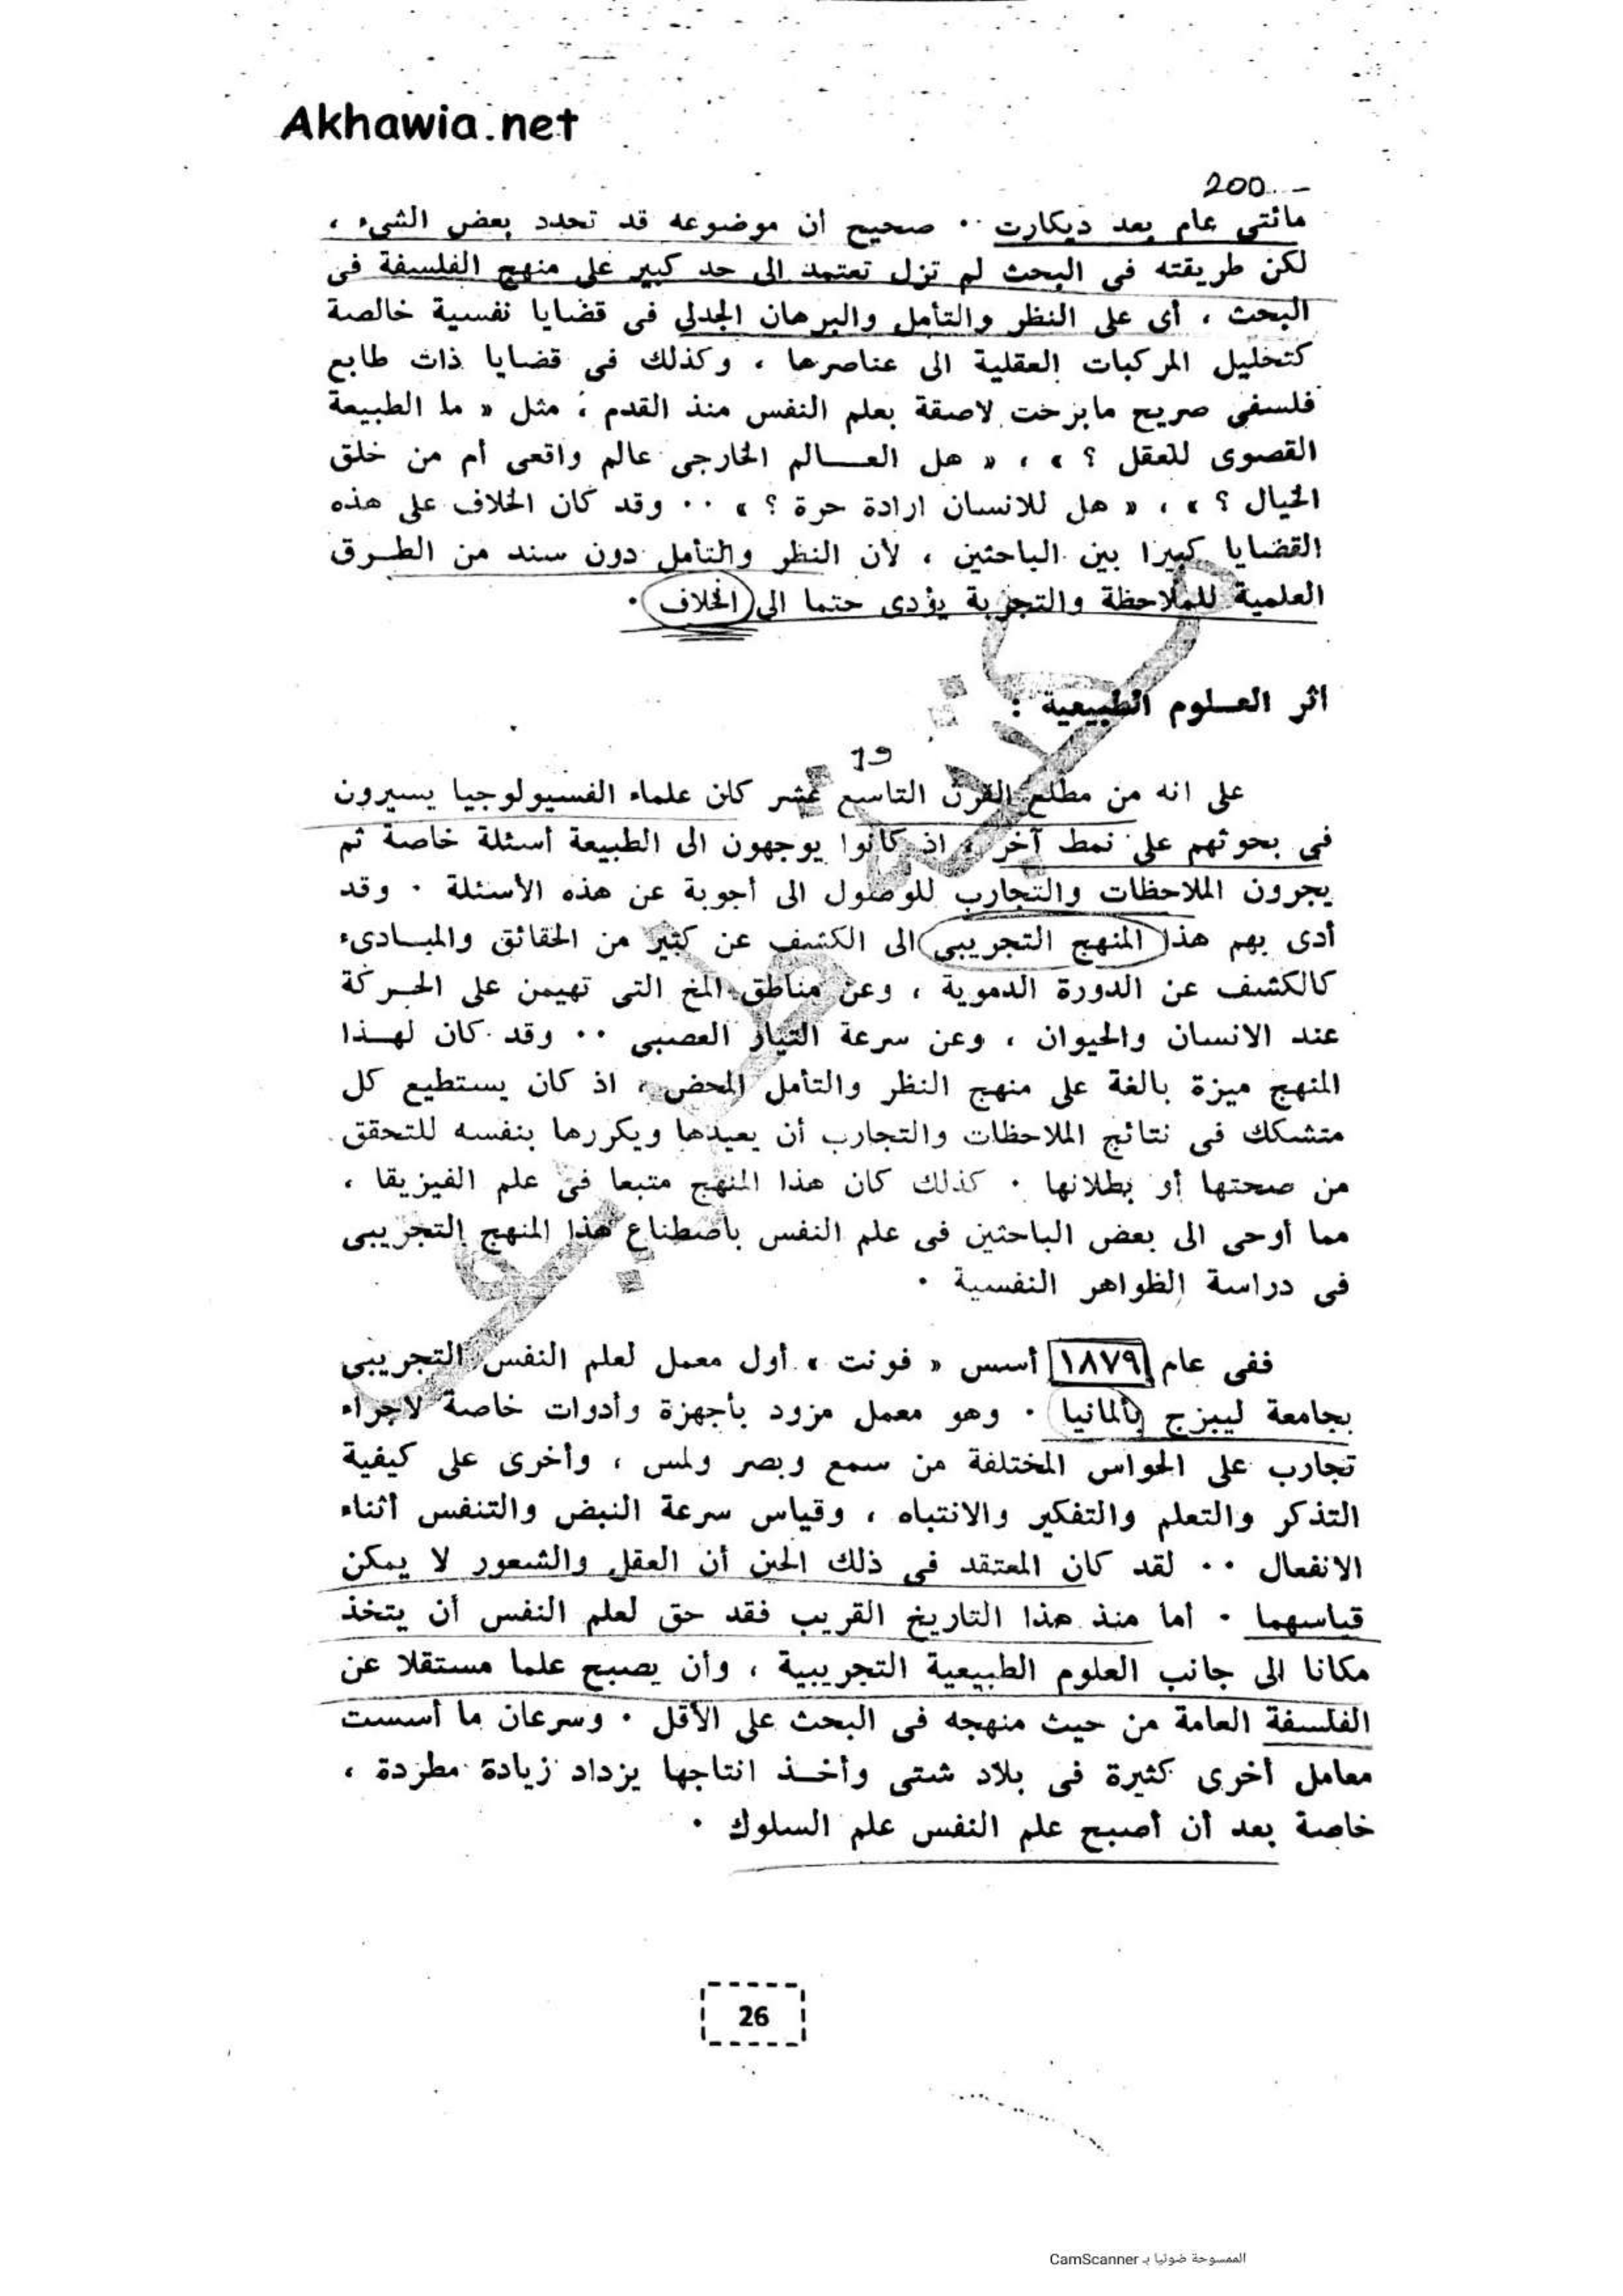 Akhawia.net
200
مائتى عام بعد ديكارت ٠٠ صحيح ان موضوعه قد تحدد بعض الشىء ،
لكن طريقته فى البحث لم تزل تعتمد الى حد كبير على منهج الفلسفة فى
البحث ، أى على النظر والتأمل والبرهان الجدلى فى قضايا نفسية خالصة
كتحليل المركبات العقلية الى عناصرها ، وكذلك فى قضايا ذات طابع
فلسفى صريح مابرحت لاصقة بعلم النفس منذ القدم ، مثل « ما الطبيعة
القصوى للعقل ؟ » ، « هل العـــالم الخارجى عالم واقعى أم من خلق
الخيال ؟ » ، « هل للانسان ارادة حرة ؟ » ٠٠ وقد كان الخلاف على هذه
القضايا كبيرا بين الباحثين ، لأن النظر والتأمل دون سند من الطـرق
العلمية للملاحظة والتجربة يؤدى حتما الى الخلاف ٠
اثر العـلوم الطبيعية :
19
على انه من مطلع القرن التاسع عشر كان علماء الفسيولوجيا يسيرون
فى بحوثهم على نمط آخر ، اذ كانوا يوجهون الى الطبيعة أسئلة خاصة ثم
يجرون الملاحظات والتجارب للوصول الى أجوبة عن هذه الأسئلة ٠ وقد
أدى بهم هذا المنهج التجريبى الى الكشف عن كثير من الحقائق والمبـادىء
كالكشف عن الدورة الدموية ، وعن مناطق المخ التى تهيمن على الحـركة
عند الانسان والحيوان ، وعن سرعة التيار العصبى ٠٠ وقد كان لهـذا
المنهج ميزة بالغة على منهج النظر والتأمل المحض ، اذ كان يستطيع كل
متشكك فى نتائج الملاحظات والتجارب أن يعيدها ويكررها بنفسه للتحقق
من صحتها أو بطلانها ٠ كذلك كان هذا المنهج متبعا فى علم الفيزيقا ،
مما أوحى الى بعض الباحثين فى علم النفس باصطناع هذا المنهج التجريبى
فى دراسة الظواهر النفسية ٠
ففى عام ١٨٧٩ أسس « فونت » أول معمل لعلم النفس التجريبى
بجامعة ليبزج بألمانيا ٠ وهو معمل مزود بأجهزة وأدوات خاصة لاجراء
تجارب على الحواس المختلفة من سمع وبصر ولمس ، وأخرى على كيفية
التذكر والتعلم والتفكير والانتباه ، وقياس سرعة النبض والتنفس أثناء
الانفعال ٠٠ لقد كان المعتقد فى ذلك الحين أن العقل والشعور لا يمكن
قياسهما ٠ أما منذ هذا التاريخ القريب فقد حق لعلم النفس أن يتخذ
مكانا الى جانب العلوم الطبيعية التجريبية ، وأن يصبح علما مستقلا عن
الفلسفة العامة من حيث منهجه فى البحث على الأقل ٠ وسرعان ما أسست
معامل أخرى كثيرة فى بلاد شتى وأخـذ انتاجها يزداد زيادة مطردة ،
خاصة بعد أن أصبح علم النفس علم السلوك ٠
26
الممسوحة ضوئيا بـ CamScanner